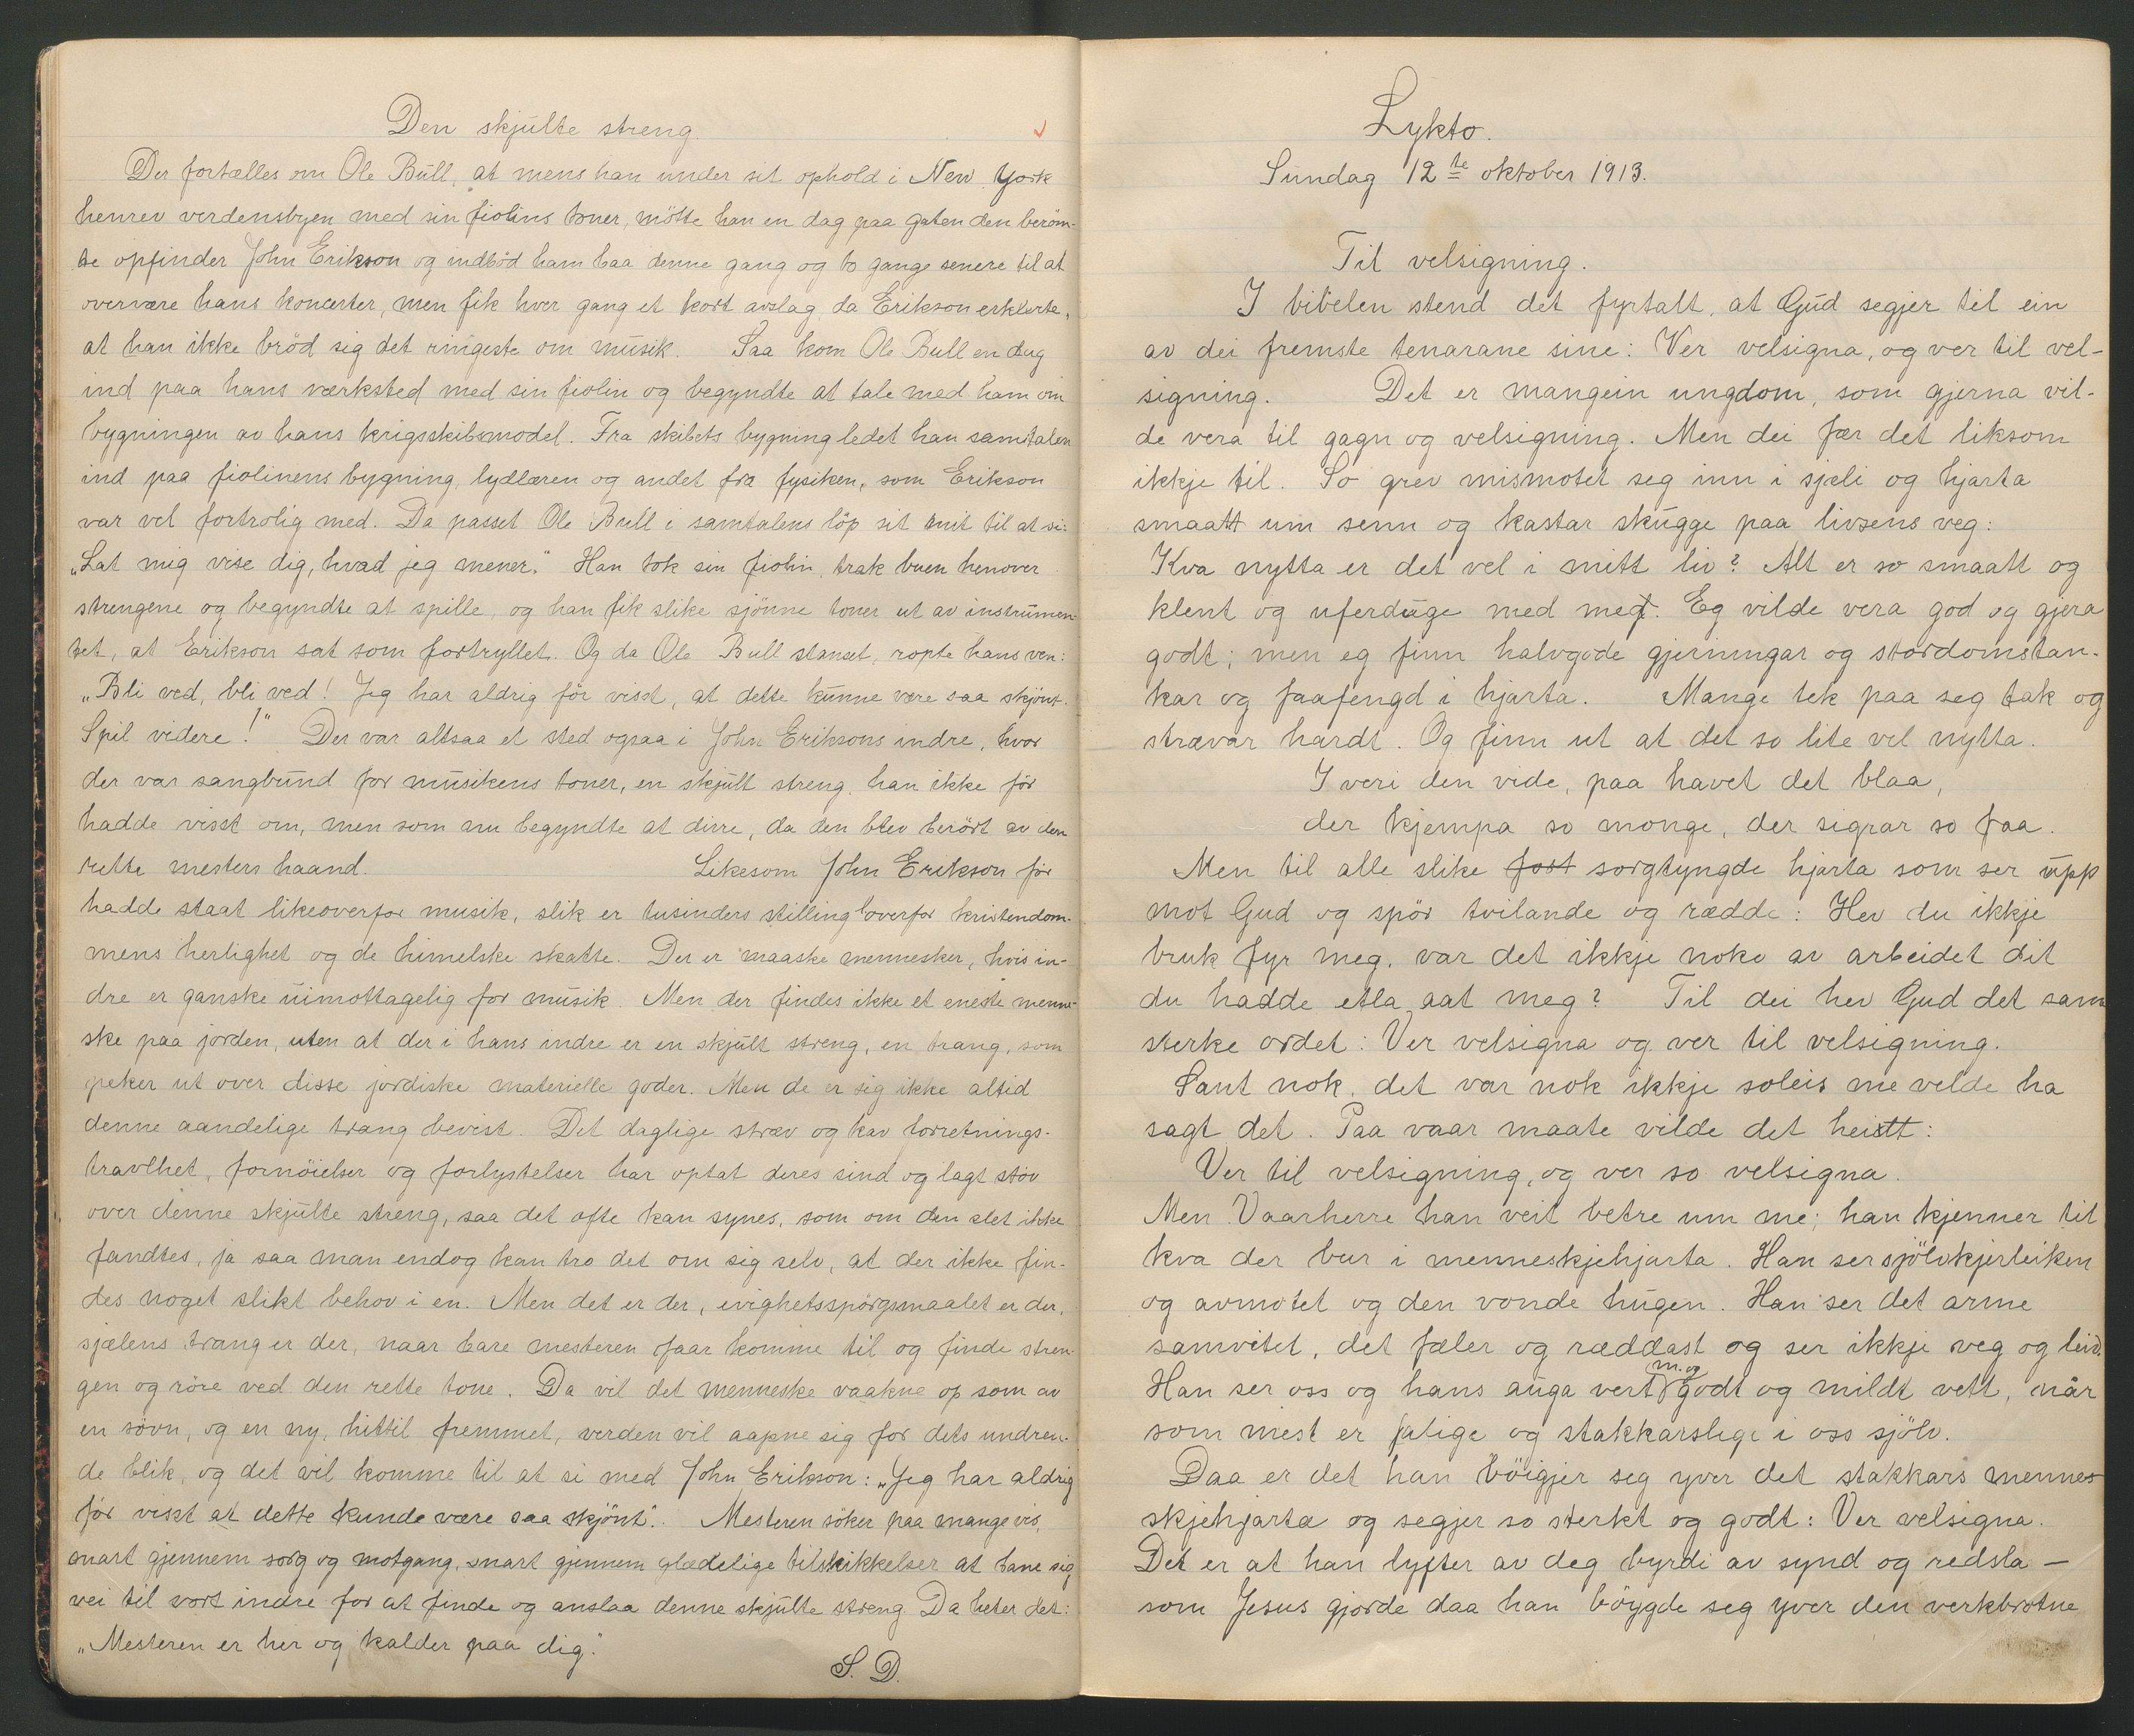 Den skjulte streng.
Der fortælles om Ole Bull, at mens han under sit ophold i New York
henrev verdensbyen med sin fiolins toner, mötte han en dag paa gaten den beröm-
te opfinder John Erikson og indböd ham baa denne gang og to gange senere til at
overvære hans koncerter, men fik hver gang et kort avslag, da Erikson erklærte,
at han ikke bröd sig det ringeste om musik. Saa kom Ole Bull en dag
ind paa hans værksted med sin fiolin og begyndte at tale med ham om
bygningen av hans krigsskibsmodel. Fra skibets bygning ledet han samtalen
ind paa fiolinens bygning, lydlæren og andet fra fysiken, som Erikson
var vel fortrolig med. Da passet Ole Bull i samtalens löp sit snit til at si:
„Lat mig vise dig, hvad jeg mener." Han tok sin fiolin, trak buen henover
strengene og begyndte at spille, og han fik slike sjönne toner ut av instrumen-
tet, at Erikson sat som fortryllet. Og da Ole Bull stanset, ropte hans ven:
„Bli ved, bli ved! Jeg har aldrig för visst, at dette kunne være saa skjönt.
Spil videre!" Der var altsaa et sted ogsaa i John Eriksons indre, hvor
der var sangbund for musikens toner, en skjult streng, han ikke för
hadde visst om, men som nu begyndte at dirre, da den blev berört av den
rette mesters haand. Likesom John Erikson för
hadde staat likeoverfor musik, slik er tusinders stilling overfor kristendom-
mens herlighet og de himelske skatte. Der er maaske mennesker, hvis in-
dre er ganske uimottagelig for musik. Men der findes ikke et eneste menne-
ske paa jorden, uten at der i hans indre er en skjult streng, en trang, som
peker ut over disse jordiske materielle goder. Men de er sig ikke altid
denne aandelige trang bevist. Det daglige stræv og kav forretnings-
travlhet, fornöielser og forlystelser har optat deres sind og lagt stöv
over denne skjulte streng, saa det ofte kan synes, som om den slet ikke
fandtes, ja saa man endog kan tro det om sig selv, at der ikke fin-
des noget slikt behov i en. Men det er der, evighetsspörgsmaalet er der,
sjælens trang er der, naar bare mesteren faar komme til og finde stren-
gen og röre ved den rette tone. Da vil det menneske vaakne op som av
en sövn, og en ny, hittil fremmet, verden vil aapne sig for dets undren-
de blik, og det vil komme til at si med John Erikson: „Jeg har aldrig
för visst at dette kunde være saa skjönt". Mesteren söker paa mange vis,
snart gjennem sorg og motgang, snart gjennem glædelige tilskikkelser at bane sig
vei til vort indre for at finde og anslaa denne skjulte streng Da heter det:
„Mesteren er her og kalder paa dig."
S. D.
Lykto.
Sundag 12te oktober 1913.
Til velsigning.
I bibelen stend det fyrtalt, at Gud segjer til ein
av dei fremste tenarane sine: Ver velsigna, og ver til vel-
signing. Det er mangein ungdom, som gjerna vil-
de vera til gagn og velsigning. Men dei fær det liksom
ikkje til. So grev mismotet seg inn i sjæli og hjarta
smaatt um senn og kastar skugge paa livsens veg:
Kva nytta er det vel i mitt liv? Alt er so smaatt og
klent og uferduge med meg. Eg vilde vera god og gjera
godt; men eg finn halvgode gjerningar og stordomstan-
kar og faafengd i hjarta. Mange tek paa seg tak og
strævar hardt. Og finn ut at det so lite vel nytta.
I veri den vide, paa havet det blaa,
der kjempa so monge, der sigrar so faa.
Men til alle slike fost sorgtyngde hjarta som ser upp
mot Gud og spör tvilande og rædde: Hev du ikkje
bruk fyr meg, var det ikkje noko av arbeidet dit
du hadde etla aat meg? Til dei hev Gud det sam
sterke ordet: Ver velsigna og ver til velsigning.
Sant nok, det var nok ikkje soleis me velde ha
sagt det. Paa vaar maate vilde det heistt:
Ver til velsigning, og ver so velsigna.
Men Vaarherre han veit betre um me; han kjenner til
kva der bur i menneskjehjarta. Han ser sjölvkjerleiken
og avmotet og den vonde hugen. Han ser det arme
samvitet, det fæler og ræddast og ser ikkje veg og leid.
Han ser oss og hans auga vert m. og godt og mildt vett, når
som mest er fatige og stakkarslege i oss sjölv.
Daa er det han böigjer seg yver det stakkars mennes-
skjehjarta og segjer so sterkt og godt: Ver velsigna.
Det er at han lyfter av deg byrdi av synd og redsla —
som Jesus gjorde daa han böygde seg yver den verkbrotne